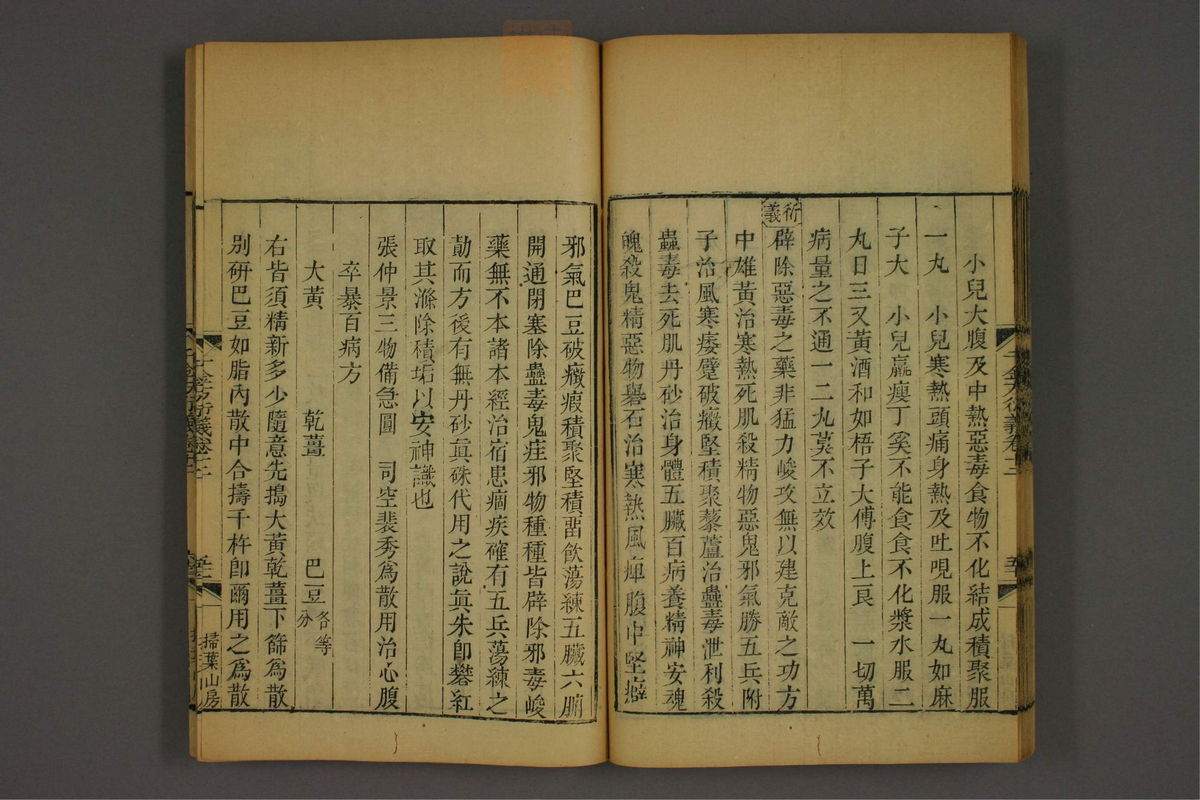 小兒大腹及中熱惡毒食物不化結成積聚服
一丸　小兒寒熱頭痛身熱及吐哯服一丸如麻
子大　小兒羸瘦丁奚不能食食不化漿水服二
丸日三又黃酒和如梧子大傅腹上良　一切萬
病量之不通一二丸莫不立效
衍義
辟除惡毒之藥非猛力峻攻無以建克敵之功方
中雄黃治寒熱死肌殺精物惡鬼邪氣勝五兵附
子治風寒痿躄破癥堅積聚藜蘆治蠱毒泄利殺
蟲毒去死肌丹砂治身體五臟百病養精神安魂
魄殺鬼精惡物礜石治寒熱風痺腹中堅癖
邪氣巴豆破癥瘕積聚堅積畱飲蕩練五臟六腑
開通閉塞除蠱毒鬼疰邪物種種皆辟除邪毒峻
藥無不本諸本經治宿患痼疾確有五兵蕩練之
勣而方後有無丹砂眞硃代用之說眞朱卽礬紅
取其滌除積垢以安神識也
張仲景三物備急圓　司空裴秀爲散用治心腹
卒暴百病方
大黃　乾薑　巴豆各等分
右皆須精新多少隨意先搗大黃乾薑下篩爲散
別研巴豆如脂內散中合擣千杵卽爾用之爲散
千金方衍義卷十二
掃葉山房